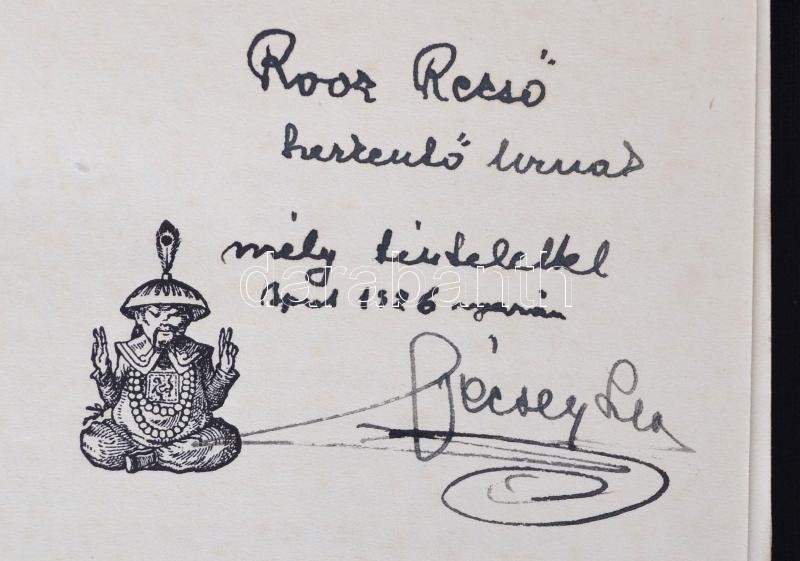 Rooz Rezső
szerkesztő úrnak
mély tisztelettel
Bpest 1926 nyarán
Bécsey Leo
darabanth